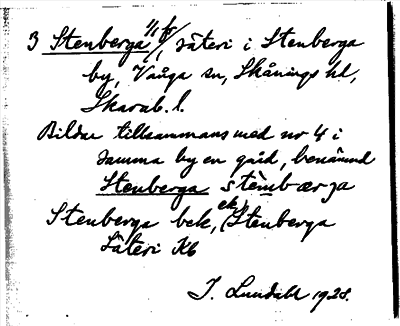 3 Stenberga 1/1 fr, säteri i Stenberga
by, Vånga sn, Skånings hd,
Skarab. l.
Bildar tillsammans med nr 4 i
samma by en gård, benämnd
Stenberga stèmbærja
Stenberga bek, (Stenberga
Säteri ek) Kb
J. Lundahl 1928.